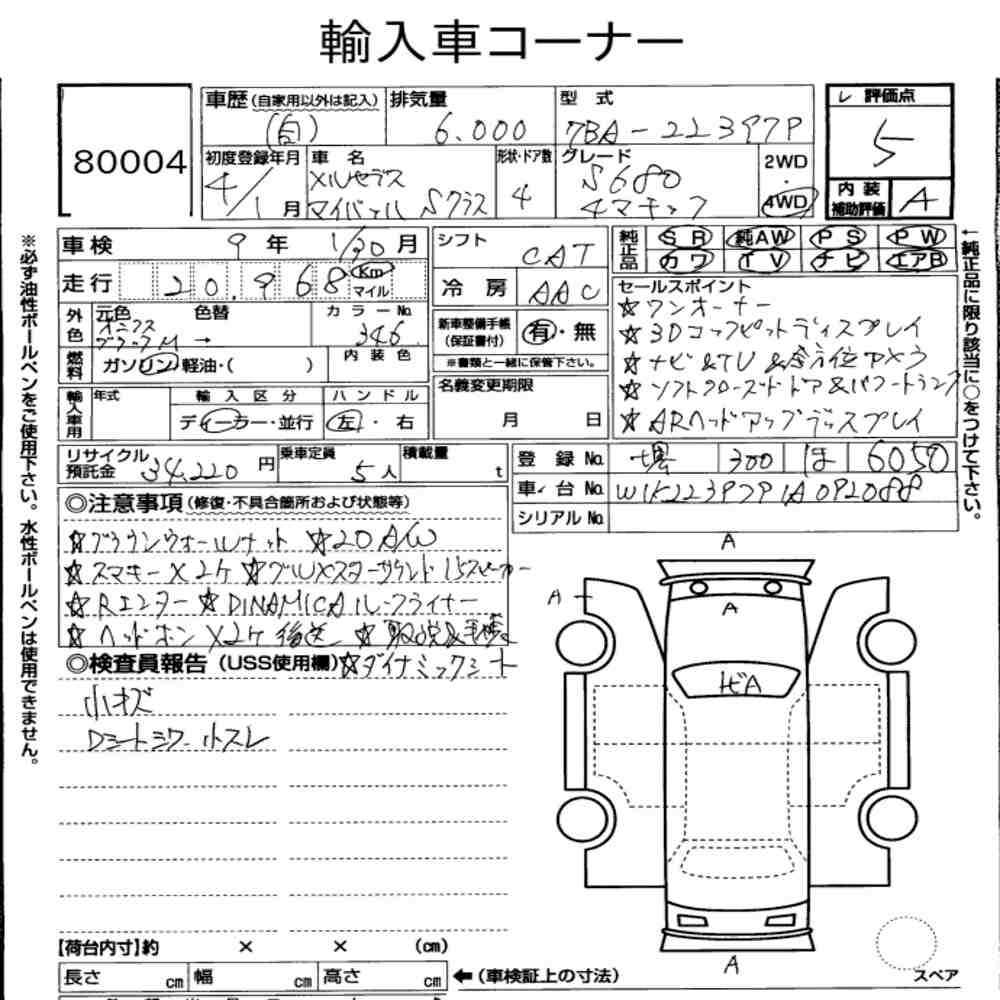 輸入車コーナー
80004
車歴 (自家用以外は記入) 排気量 型式 評価点
(自) 6.000 7BA-223979 5
初度登録年月 車名 形状・ドア数 グレード 2WD・4WD 内装補助評価
4/1月 メルセデス マイバッハ Sクラス 4 S680 4マチック A
車検 9年 1/20月 シフト CAT
走行 20.968 Km マイル 冷房 AAC
純正品 SR 純AW PS PW
カワ TV ナビ エアB
外色 元色 色替 カラーNo.
オニクスブラックM → 346
内装色
燃料 ガソリン・軽油・( )
新車整備手帳(保証書付) 有・無
※書類と一緒に保管下さい。
名義変更期限 月 日
輸入車用 年式 輸入区分 ハンドル
ディーラー・並行 左・右
セールスポイント
☆ワンオーナー
☆3Dコックピットディスプレイ
☆ナビ&TV&全方位カメラ
☆ソフトクローズドドア&パワートランク
☆ARヘッドアップディスプレイ
リサイクル預託金 34,220円 乗車定員 5人 積載量 t
登録No. 堺 300 ほ 6050
車台No. W1K2239791A092088
シリアルNo.
◎注意事項(修復・不具合箇所および状態等)
☆ブラウンウォールナット ☆20AW
☆スマキー×2ケ ☆ブルメスターサウンド 15スピーカー
☆Rエンター ☆DINAMICAルーフライナー
☆ヘッドホン×2ケ後送 ☆取説&手帳
◎検査員報告(USS使用欄)☆ダイナミックシート
小キズ
Dシートシワ 小スレ
A
A
A
トビA
A
【荷台内寸】約 × × (cm)
長さ cm 幅 cm 高さ cm ←(車検証上の寸法)
スペア
※必ず油性ボールペンをご使用下さい。水性ボールペンは使用できません。
←純正品に限り該当に○をつけて下さい。